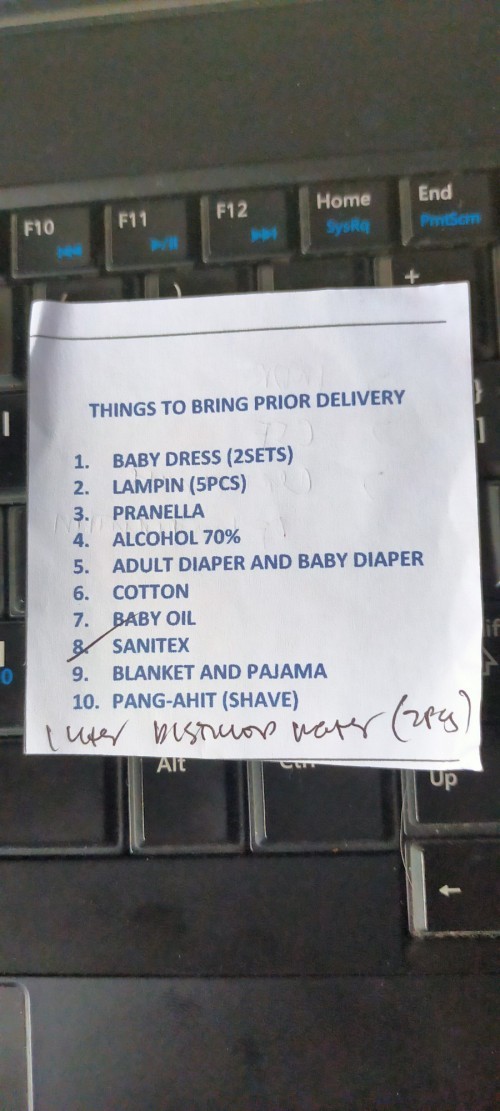 F10
F11
F12
Home
SysRq
End
PrntScrn
THINGS TO BRING PRIOR DELIVERY
1. BABY DRESS (2SETS)
2. LAMPIN (5PCS)
3. PRANELLA
4. ALCOHOL 70%
5. ADULT DIAPER AND BABY DIAPER
6. COTTON
7. BABY OIL
8. SANITEX
9. BLANKET AND PAJAMA
10. PANG-AHIT (SHAVE)
1 liter Distilled water (2pcs)
Alt
Ctrl
Up